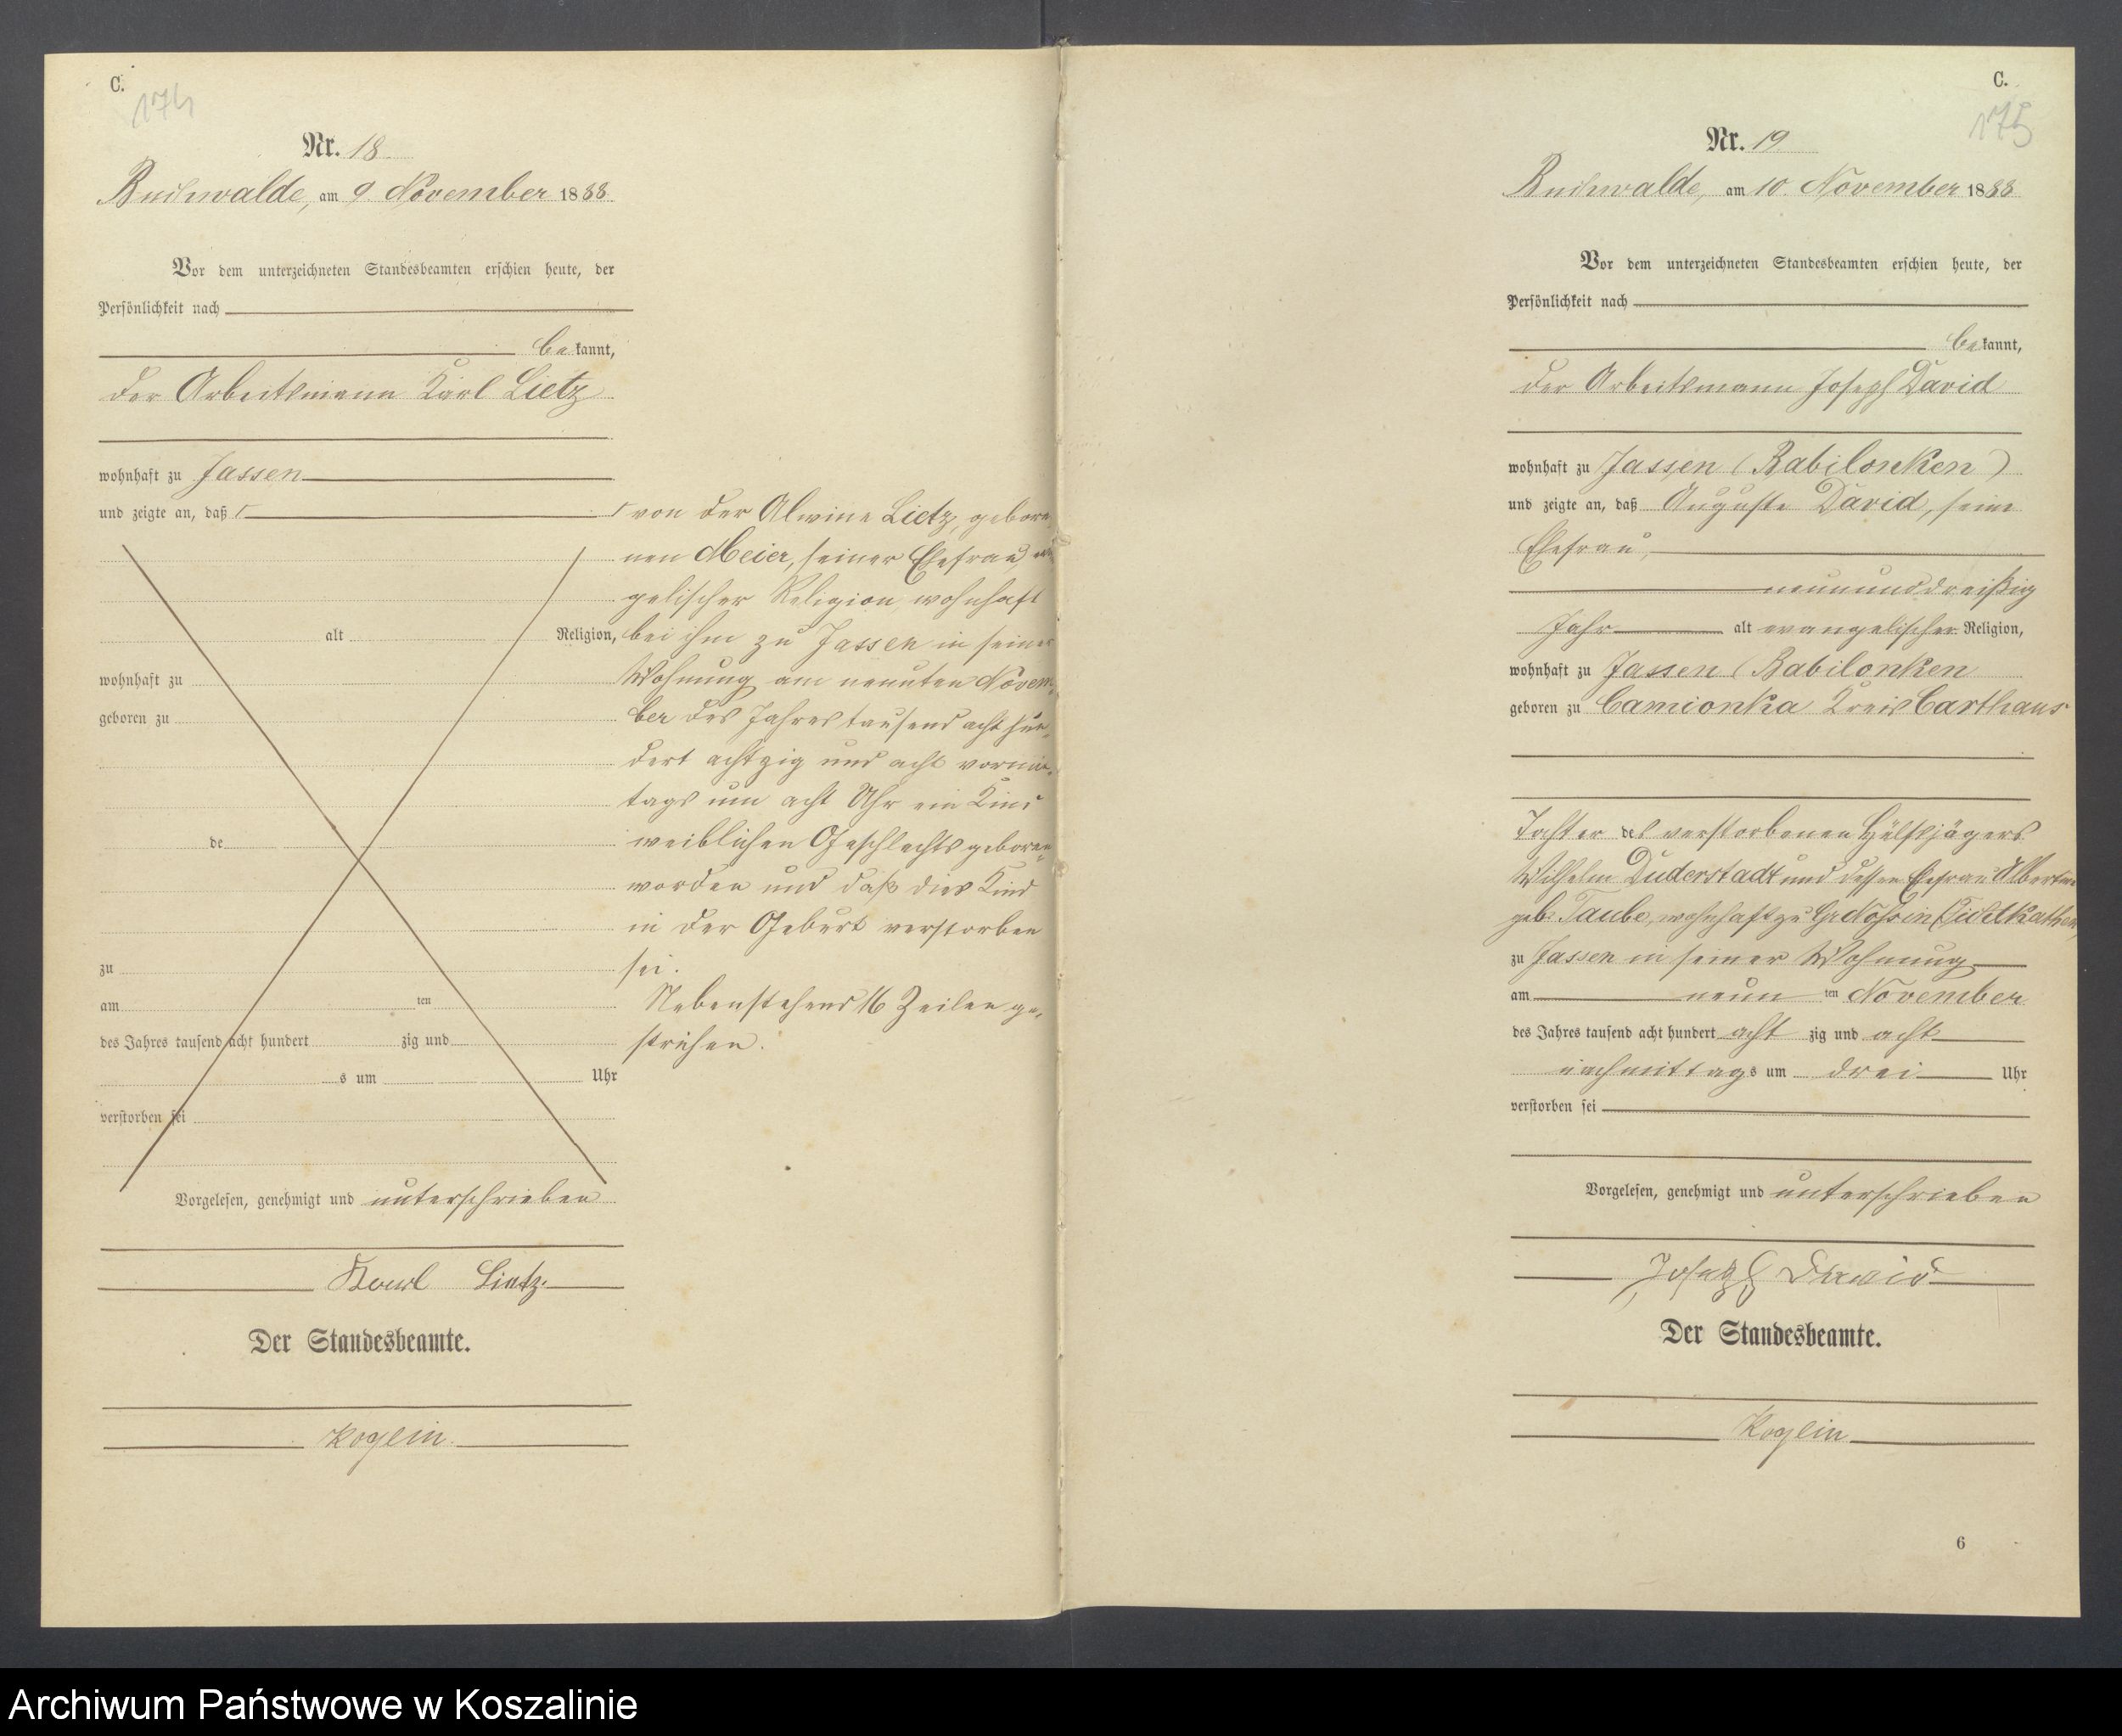 C.
174
Nr. 18
Buchwalde, am 9. November 1888
Vor dem unterzeichneten Standesbeamten erschien heute, der
Persönlichkeit nach
bekannt,
der Arbeitsmann Karl Lietz
wohnhaft zu Jassen
und zeigte an, daß
alt Religion,
wohnhaft zu
geboren zu
de
zu
am ten
des Jahres tausend acht hundert zig und
s um Uhr
verstorben sei
von der Alwine Lietz, gebore-
nen Meier, seiner Ehefrau, evan
gelischer Religion, wohnhaft
bei ihm zu Jassen in seiner
Wohnung am neunten Novem-
ber des Jahres tausend acht hun-
dert achtzig und acht vormit-
tags um acht Uhr ein Kind
weiblichen Geschlechts geboren
worden und daß dies Kind
in der Geburt verstorben
sei.
Nebenstehend 16 Zeilen ge-
strichen.
Vorgelesen, genehmigt und unterschrieben
Karl Lietz.
Der Standesbeamte.
Koglin.
C.
175
Nr. 19
Buchwalde, am 10. November 1888
Vor dem unterzeichneten Standesbeamten erschien heute, der
Persönlichkeit nach
bekannt,
der Arbeitsmann Joseph David
wohnhaft zu Jassen (Babilonken)
und zeigte an, daß Auguste David, seine
Ehefrau,
neununddreißig
Jahr alt evangelischer Religion,
wohnhaft zu Jassen (Babilonken
geboren zu Camionka Kreis Carthaus
Tochter des verstorbenen Hülfsjägers
Wilhelm Duderstadt und dessen Ehefrau Albertine
geb. Taube, wohnhaft zu Gr Nossin
zu Jassen in seiner Wohnung
am neun ten November
des Jahres tausend acht hundert acht zig und acht
nachmittags um drei Uhr
verstorben sei
Vorgelesen, genehmigt und unterschrieben
Joseph David
Der Standesbeamte.
Koglin
6
Archiwum Państwowe w Koszalinie